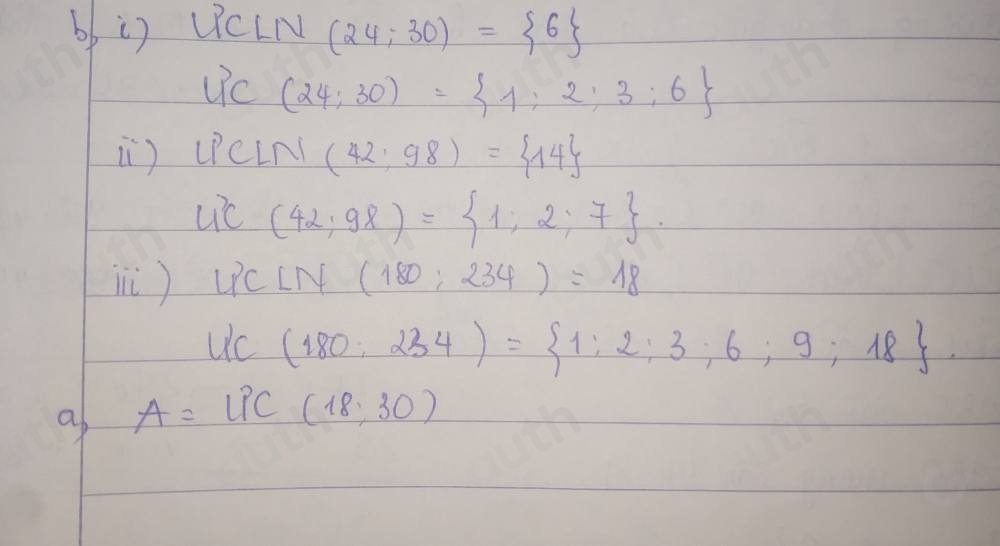 b, i) ƯCLN (24; 30) = {6}
ƯC (24; 30) = {1; 2; 3; 6}
ii) ƯCLN (42; 98) = {14}
ƯC (42; 98) = {1; 2; 7}.
iii) ƯCLN (180; 234) = 18
ƯC (180; 234) = {1; 2; 3; 6; 9; 18}.
a, A = ƯC (18; 30)